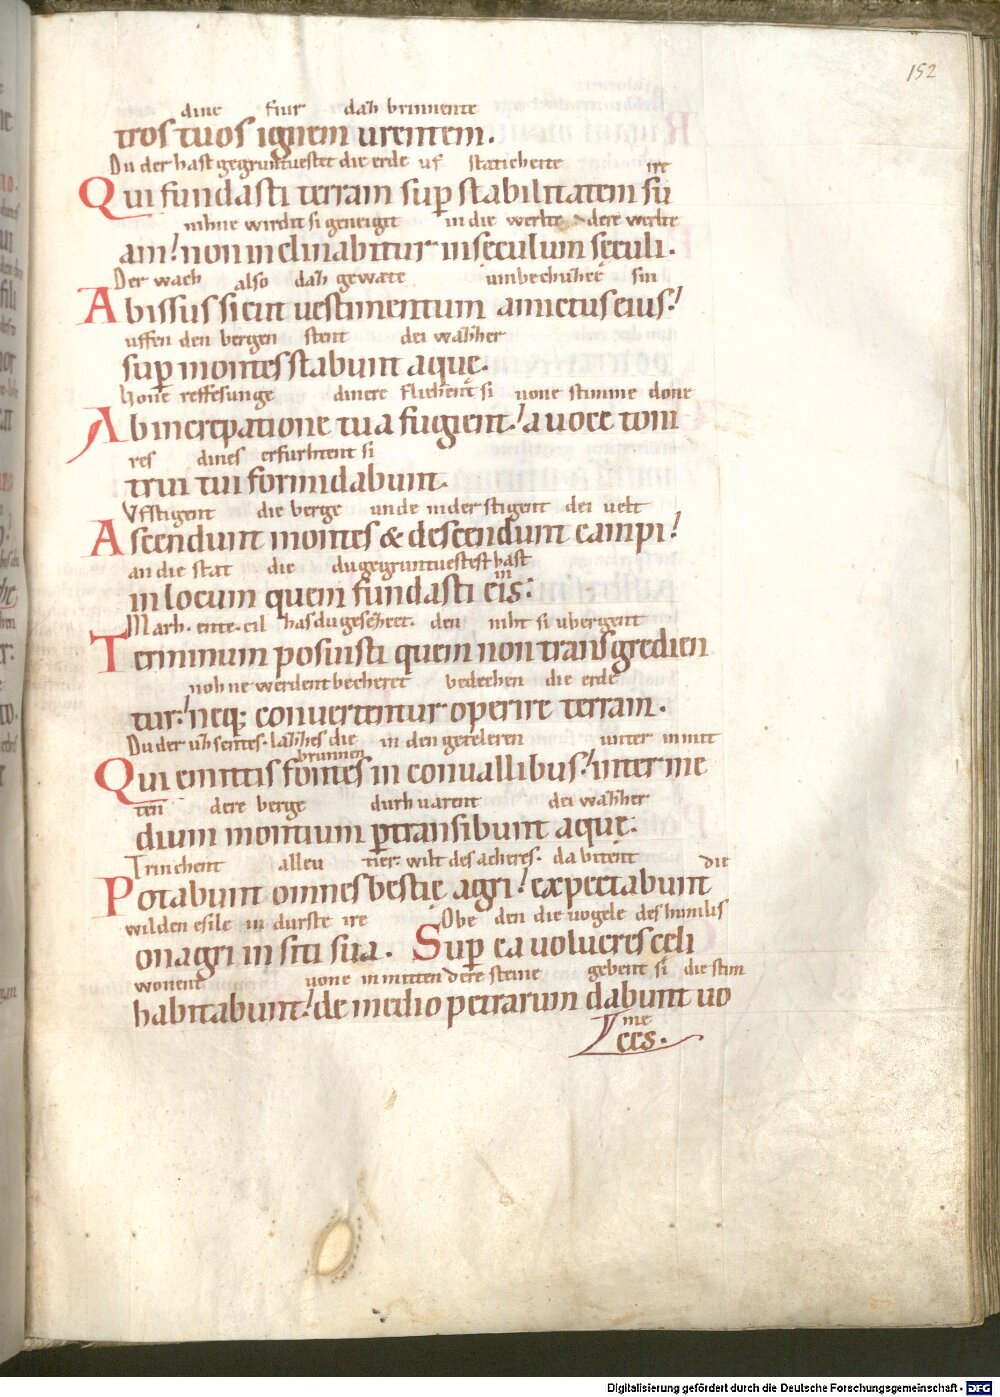 152
dine fiur dah brinnente
tros tuos ignem urentem.
Du der hast gegruntuestet die erde uf staticheite ire
Qui fundasti terram sup stabilitatem su
nihne wirdit si geneigit in die werlte dere werlte
am! non inclinabitur in seculum seculi.
Der wach also dah gewate umbechuhee sin
Abissus sicut uestimentum amictus eius!
uffen den bergen stent dei wahher
sup montes stabunt aque.
Hone reffesunge dinere fliehent si uone stimme done
Ab increpatione tua fugient! a uoce toni
res dines erfurhtent si
trui tui formidabunt.
Vfstigent die berge unde nider stigent dei uelt
Ascendunt montes & descendunt campi!
an die stat die du gegruntuestest hast
in
in locum quem fundasti eis:
Marh. ente. cil hasdu gesecet. den niht si ubergent
Terminum posuisti quem non transgredien
noh ne werdent becheret bedechen die erde
tur! neq; conuertentur operire terram.
Du der uhsentes. lahhes die in den geteleren unter in mit
brunnen
Qui emittis fontes in conuallibus! inter me
ten dere berge durhuarent dei wahher
dium montium ptransibunt aque.
Trinchent alleu tier. wilt des acheres. da bitent die
Potabunt omnes bestie agri! expectabunt
wilden esile in durste ire Obe den die uogele des himilis
onagri in siti sua. Sup ea uolucres celi
wonent uone in mitten dere steine gebent si die stim
habitabunt! de medio petrarum dabunt uo
me
ces.
Digitalisierung gefördert durch die Deutsche Forschungsgemeinschaft - DFG